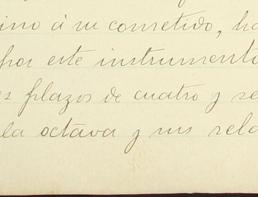 ino á su cometido, ha
por este instrumento
es plazos de cuatro y se
la octava y sus rela